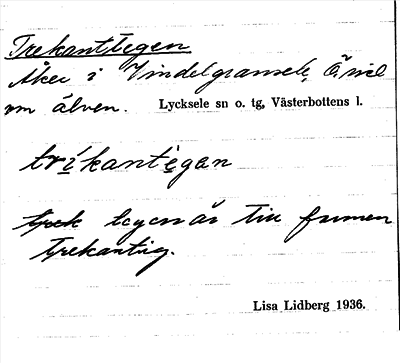 Trekanttegen
Åker i Vindelgransele, Ö sid
om älven. Lycksele sn o. tg, Västerbottens l.
trikantegen
tegen är till formen
trekantig.
Lisa Lidberg 1936.